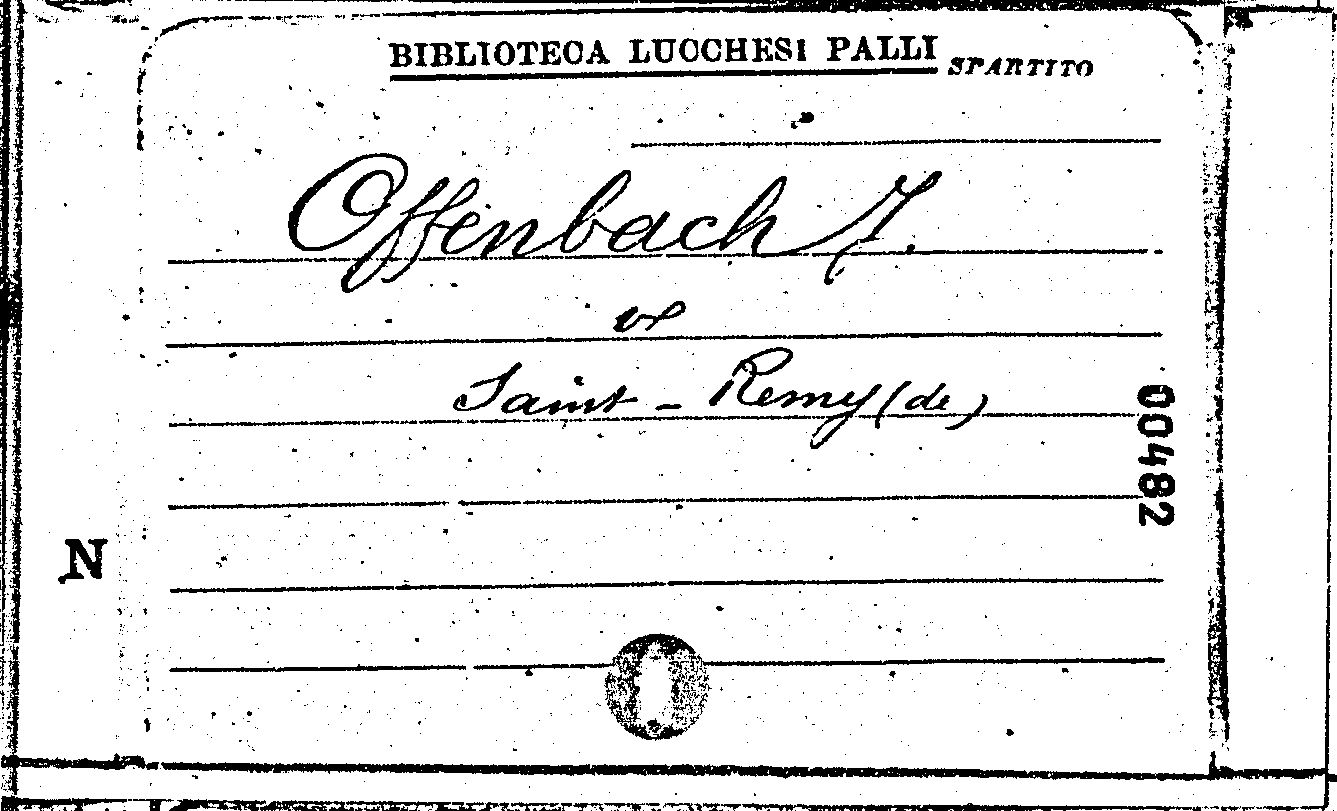 BIBLIOTECA LUCCHESI PALLI SPARTITO
Offenbach J.
Saint-Remy (de)
00482
N